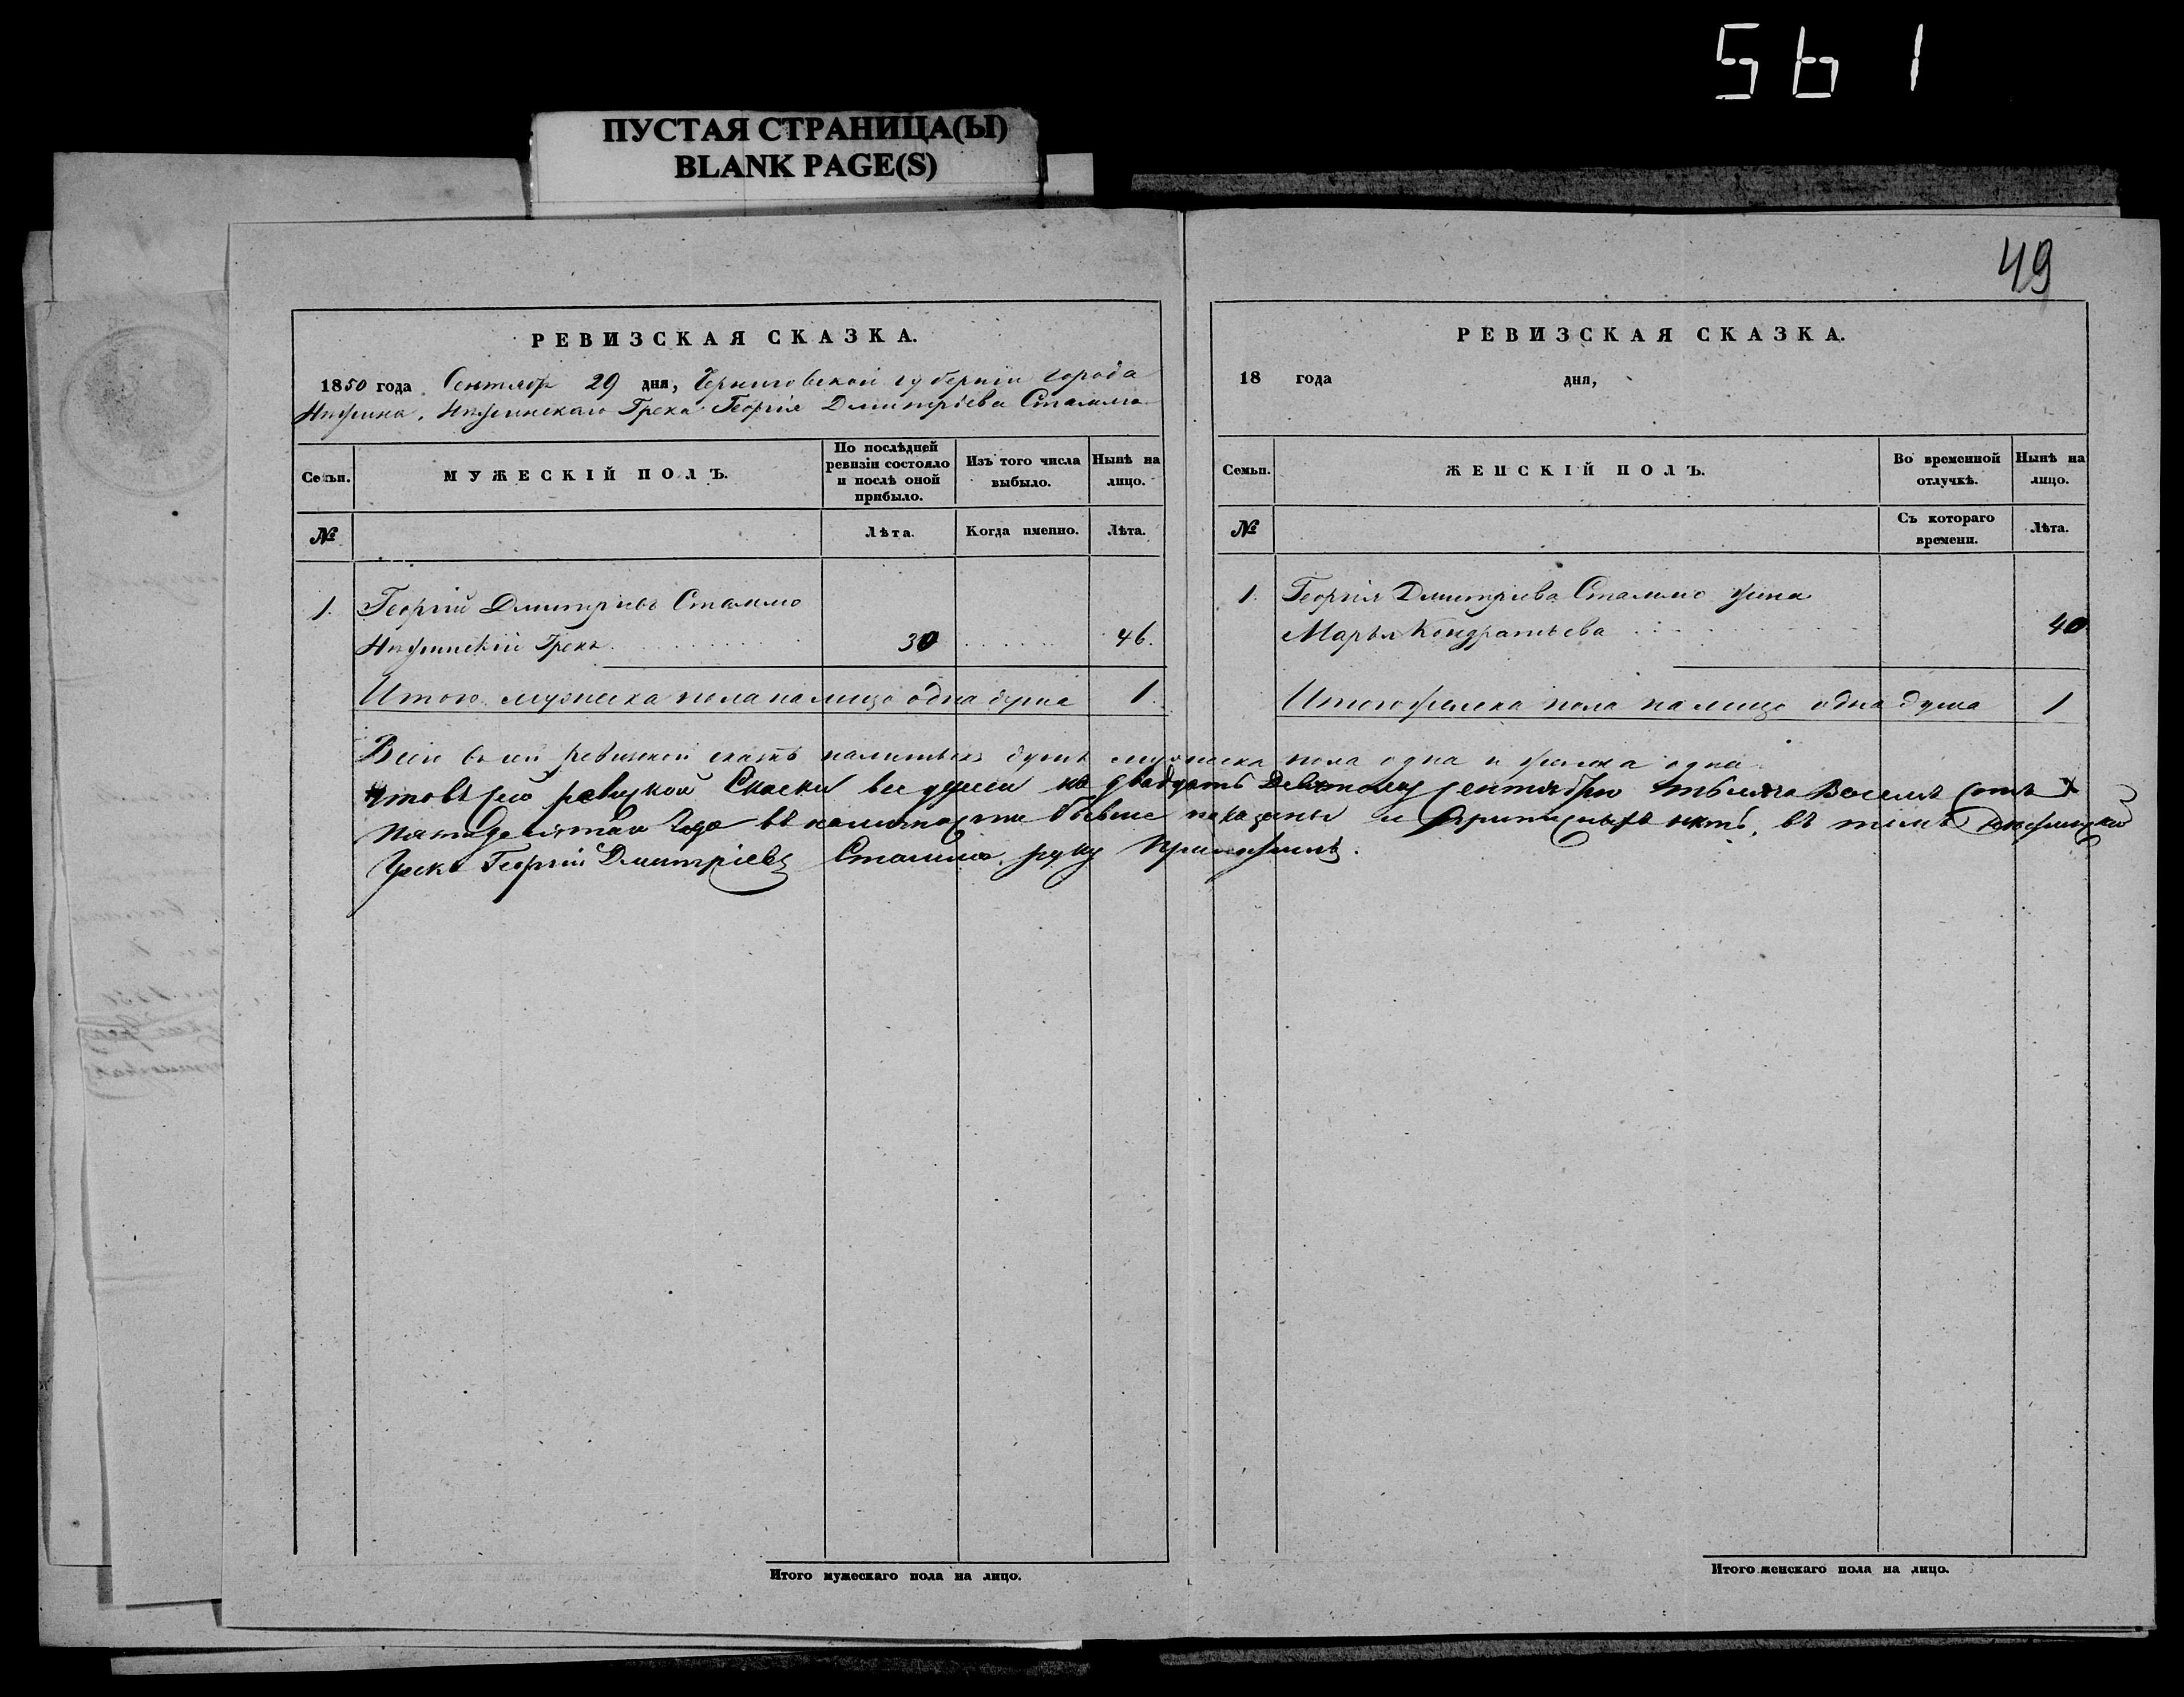 561
ПУСТАЯ СТРАНИЦА(Ы)
BLANK PAGE(S)
49
РЕВИЗСКАЯ СКАЗКА.
1850 года Сентябр 29 дня, Черниговской губерніи города
Нѣжина, Нѣжинскаго Грека Георгія Дмитріева Стаммо
Семьи.
МУЖЕСКІЙ ПОЛЪ.
По послѣдней ревизіи состояло и послѣ оной прибыло.
Изъ того числа выбыло.
Нынѣ на лицо.
№
Лѣта.
Когда именно.
Лѣта.
1. Георгій Дмитріевъ Стаммо
Нѣжинскій Грекъ 30 46.
Итого мужеска пола на лицо одна душа 1.
РЕВИЗСКАЯ СКАЗКА.
18 года дня,
Семьи.
ЖЕНСКІЙ ПОЛЪ.
Во временной отлучкѣ.
Нынѣ на лицо.
№
Съ котораго времени.
Лѣта.
1. Георгія Дмитріева Стаммо жена
Марья Кондратьева 40
Итого женска пола на лицо одна душа 1
Всего въ сей ревизской сказкѣ наличныхъ душъ мужеска пола одна и женска одна
Что въ сей ревизкой Скаски все души по двадцать Девятому сентября тысяча Восемъ сотъ
Пятидесятаго Года въ наличности бывшие показаны и Прописныхъ нѣтъ, въ томъ нѣжинский
Грекъ Георгій Дмитріевъ Стаммо руку Приложилъ.
Итого мужескаго пола на лицо.
Итого женскаго пола на лицо.